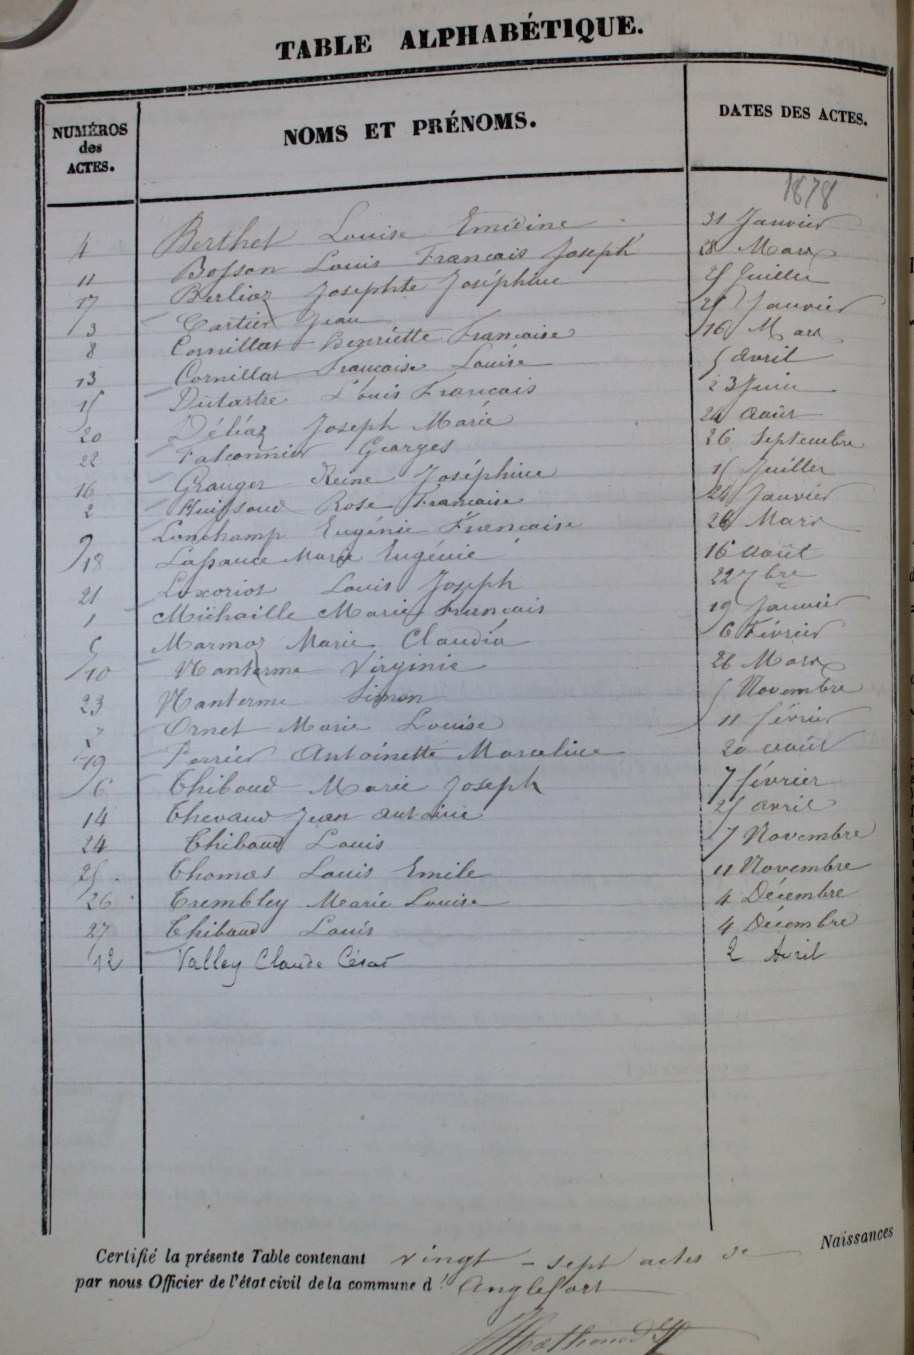 TABLE ALPHABÉTIQUE.
NUMÉROS des ACTES. NOMS ET PRÉNOMS. DATES DES ACTES.
1878
4 Berthet Louise Emédine 31 Janvier
11 Bosson Louis Francais Joseph 28 Mars
17 Berlioz Josephte Joséphine 25 Juillet
3 Cartier Jean 25 Janvier
8 Cornillat Henriette Francaise 16 Mars
13 Cornillat Francaise Louise 5 avril
15 Dutartre Louis Francais 23 Juin
20 Déléaz Joseph Marie 24 août
22 Falconnier Georges 26 Septembre
16 Granger Reine Joséphine 15 Juillet
2 Rose Francaise 24 Janvier
9 Lonchamp Eugénie Francaise 26 Mars
18 Lassauce Marie Eugénie 16 août
21 Luxoriot Louis Joseph 22 7bre
1 Michaille Marie Francais 19 Janvier
5 Marmoz Marie Claudia 6 Février
10 Nanterme Virginie 26 Mars
23 Nanterme Simon 5 Novembre
7 Ornet Marie Louise 11 février
19 Perrier Antoinette Marceline 20 août
6 Thibaud Marie Joseph 7 février
14 Thevand Jean antoine 25 avril
24 Thibaud Louis 7 Novembre
25 Thomas Louis Emile 11 Novembre
26 Trembley Marie Louise 4 Décembre
27 Thibaud Louis 4 Décembre
12 Valley Claude César 2 Avril
Certifié la présente Table contenant vingt-sept actes de Naissances
par nous Officier de l'état civil de la commune d'Anglefort